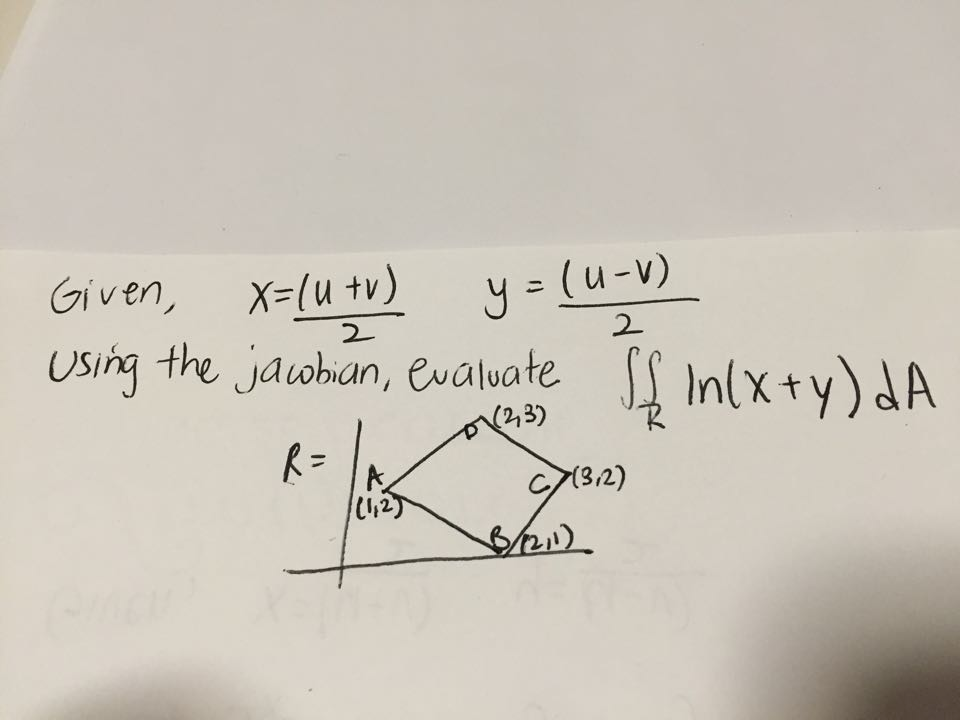 Given, x=(u+v)/2 y=(u-v)/2
Using the jacobian, evaluate ∫∫R ln(x+y) dA
D (2,3)
R= A C (3,2)
(1,2)
B (2,1)